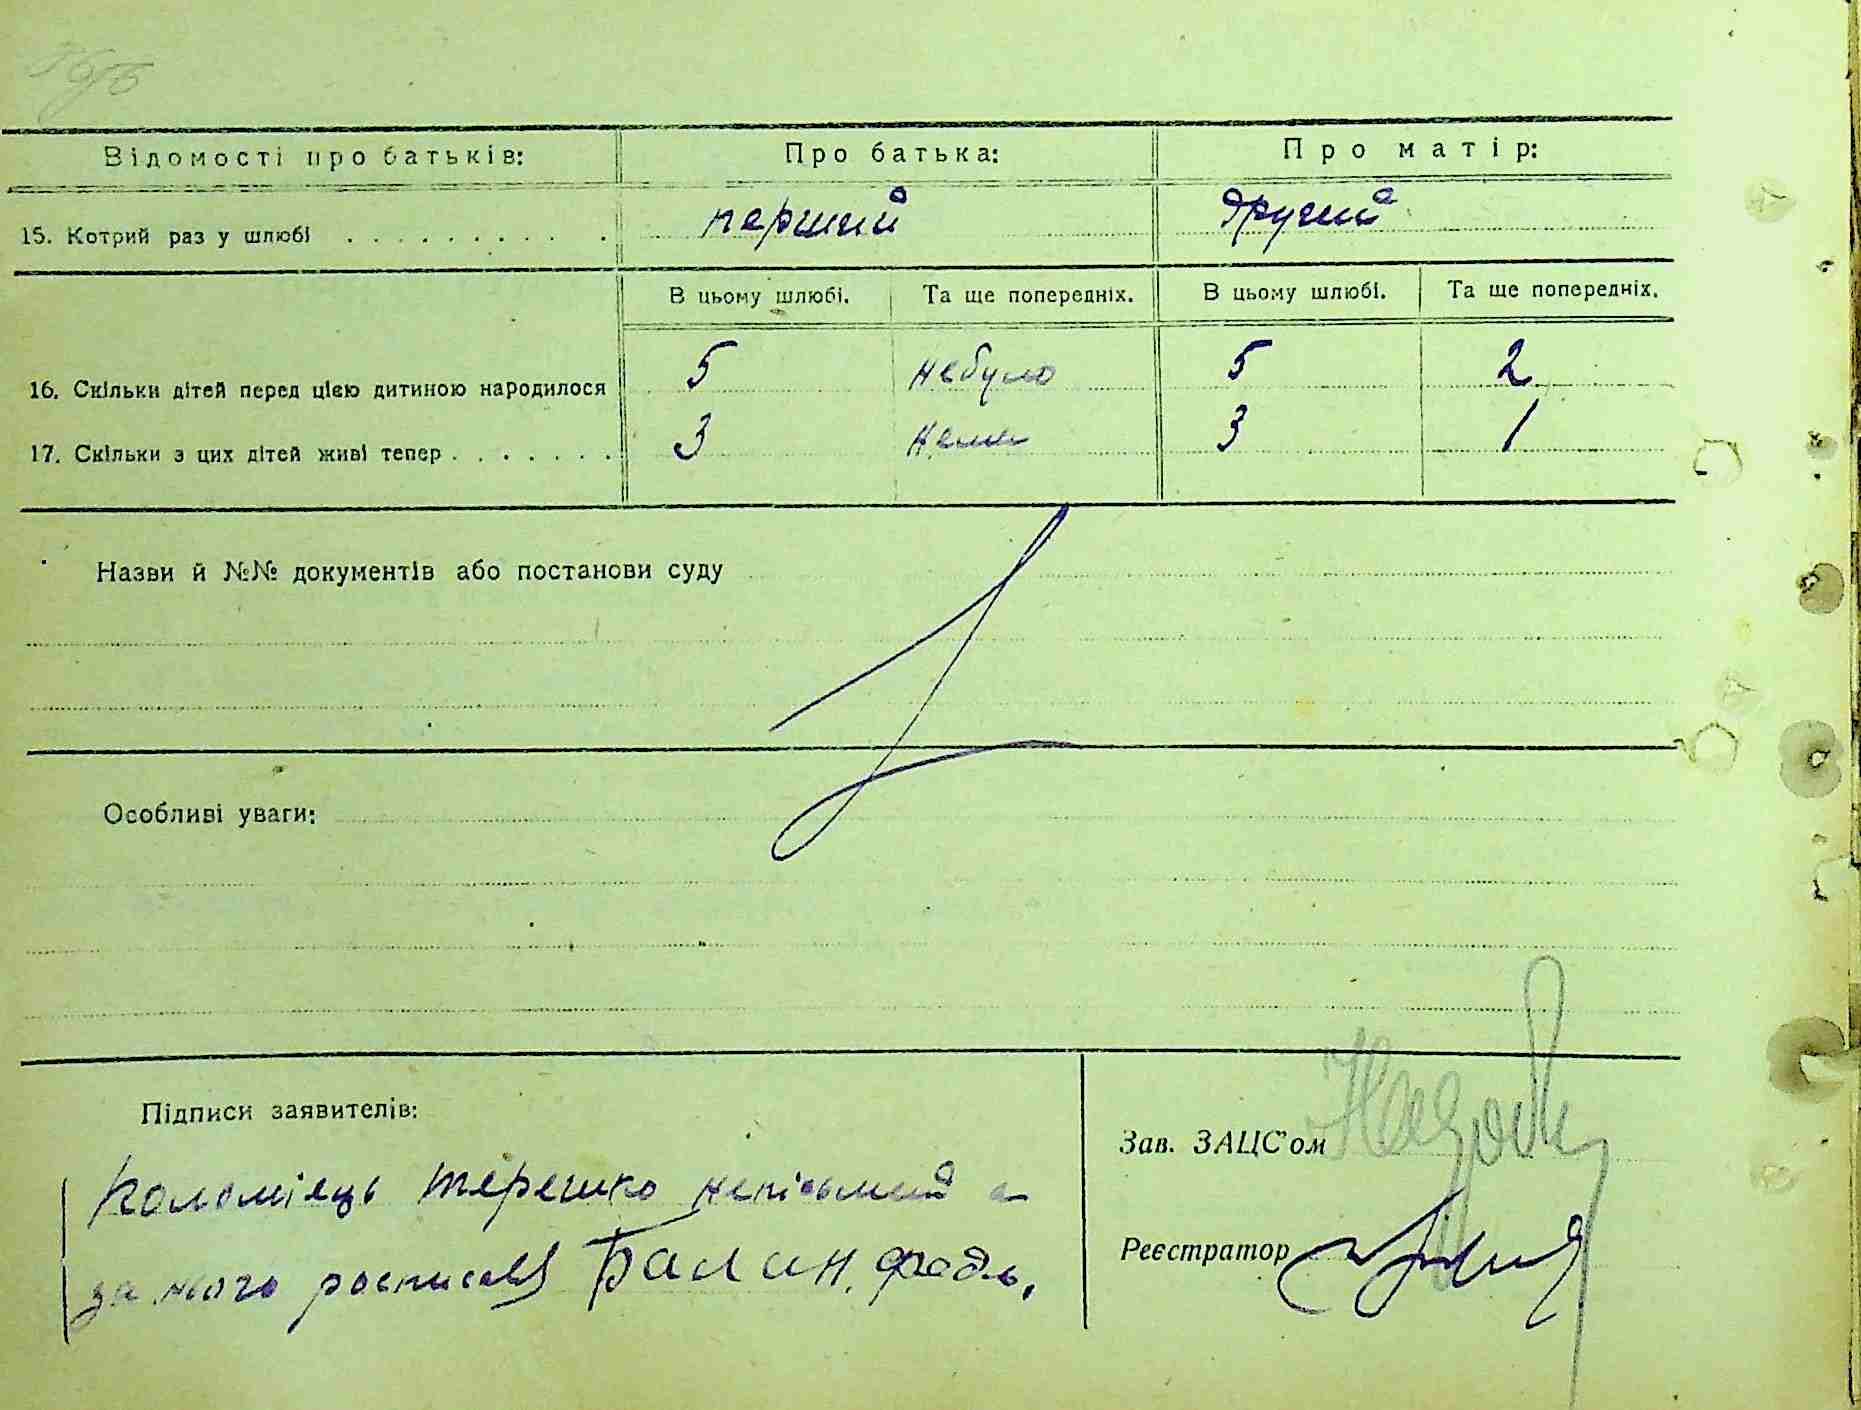 Відомості про батьків: Про батька: Про матір:
15. Котрий раз у шлюбі . . . . . . . . . . перший другий
В цьому шлюбі. Та ще попередніх. В цьому шлюбі. Та ще попередніх.
16. Скільки дітей перед цією дитиною народилося 5 небуло 5 2
17. Скільки з цих дітей живі тепер . . . . . . . 3 нема 3 1
Назви й №№ документів або постанови суду
Особливі уваги:
Підписи заявителів:
Зав. ЗАЦС'ом
Коломієць Терешко непісьмений а
за нього росписався Балан
Реєстратор